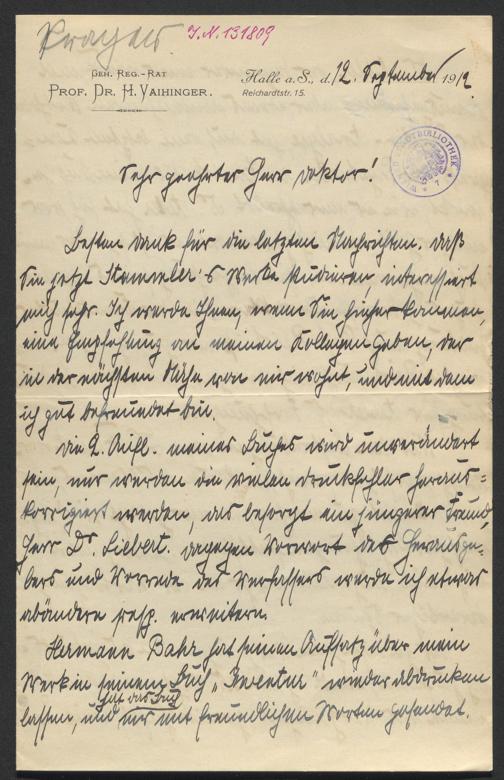 Prager.
I.N. 131809
GEH. REG.-RAT
PROF. DR. H. VAIHINGER.
Halle a. S., d. 12. September 1912
Reichardtstr. 15.
STADTBIBLIOTHEK
WIEN
Sehr geehrter Herr Doktor!
Besten Dank für die letzten Nachrichten. Daß
Sie jetzt Stammler's Werke studieren, interessiert
mich sehr. Ich werde Ihnen, wenn Sie hieher kommen,
eine Empfehlung an meinen Kollegen geben, der
in der nächsten Nähe von mir wohnt, und mit dem
ich gut befreundet bin.
Die 2. Aufl. meines Buches wird unverändert
sein, nur werden die vielen Druckfehler heraus=
korrigiert werden, das besorgt ein jüngerer Freund,
Herr Dr. Liebert. Dagegen Vorwort des Herausge-
bers und Vorrede des Verfassers werde ich etwas
abändern resp. erweitern.
Hermann Bahr hat seinen Aufsatz über mein
Werk in seinem Buch „Inventur" wieder abdrucken
lassen, und hat das Buch mir mit freundlichen Worten gesendet.